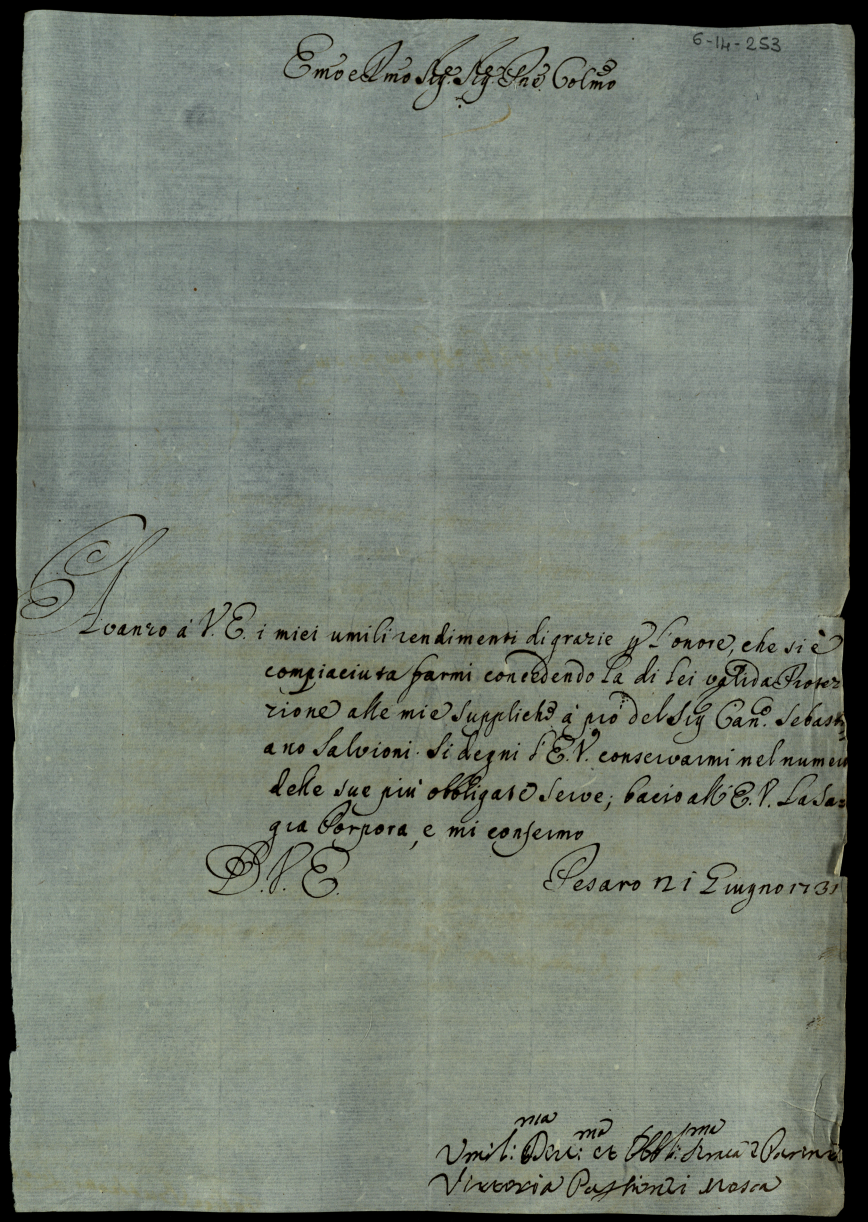 6-14-253
Emo e Rmo Sig.re Sig.re Pne. Colmo
Avanzo à V. E. i miei umili rendimenti di grazie p l'onore, che si è
compiaciuta farmi concedendo la di lei valida Protez=
zione alle mie suppliche à prò del Sig Cano. Sebasti=
ano Salvioni. Si degni l'E. V. conservarmi nel numero
delle sue più obbligate serve; bacio all'E. V. la Sa=
gra Porpora, e mi confermo
D. V. E.
Pesaro 21 Giugno 1731
Umil:ma Dev:ma et Obbl:ma Serva e Parente
Vittoria Passionei Mosca